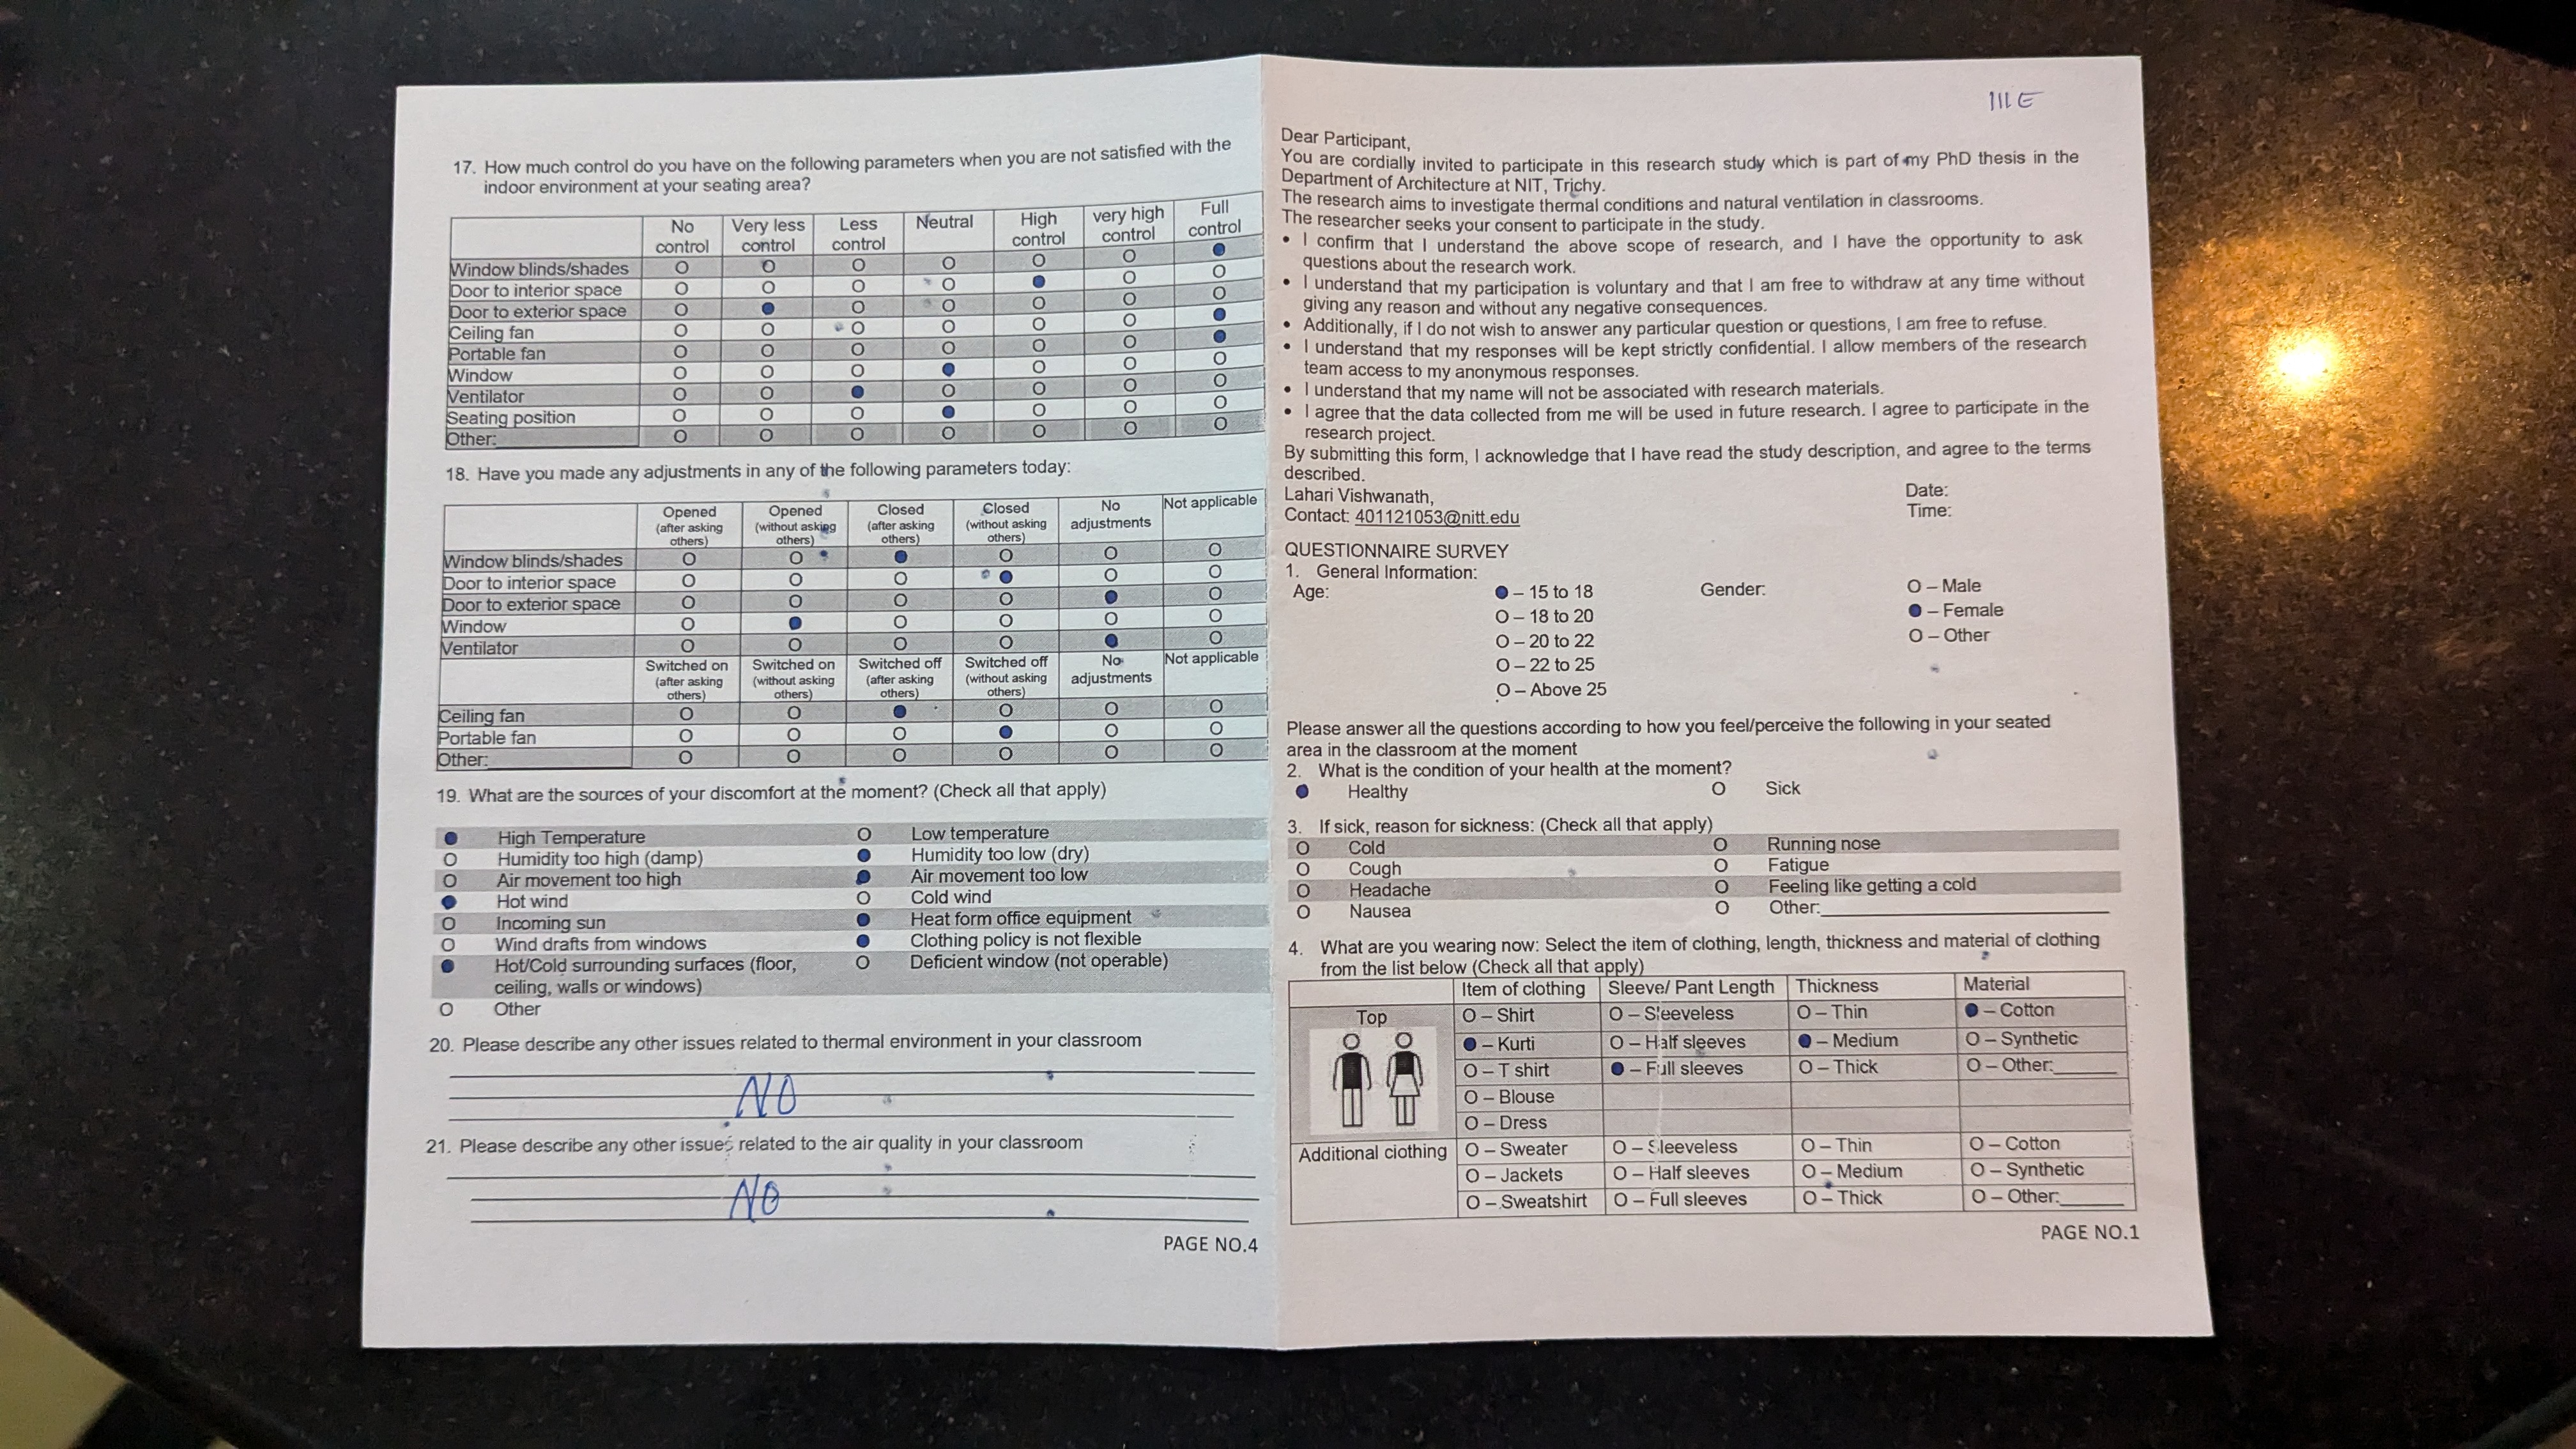 17. How much control do you have on the following parameters when you are not satisfied with the
indoor environment at your seating area?
No control Very less control Less control Neutral High control very high control Full control
Window blinds/shades O O O O O O ●
Door to interior space O O O O ● O O
Door to exterior space O ● O O O O O
Ceiling fan O O O O O O ●
Portable fan O O O O O O ●
Window O O O ● O O O
Ventilator O O ● O O O O
Seating position O O O ● O O O
Other: O O O O O O O
18. Have you made any adjustments in any of the following parameters today:
Opened (after asking others) Opened (without asking others) Closed (after asking others) Closed (without asking others) No adjustments Not applicable
Window blinds/shades O O ● O O O
Door to interior space O O O ● O O
Door to exterior space O O O O ● O
Window O ● O O O O
Ventilator O O O O ● O
Switched on (after asking others) Switched on (without asking others) Switched off (after asking others) Switched off (without asking others) No adjustments Not applicable
Ceiling fan O O ● O O O
Portable fan O O O ● O O
Other: O O O O O O
19. What are the sources of your discomfort at the moment? (Check all that apply)
● High Temperature O Low temperature
O Humidity too high (damp) ● Humidity too low (dry)
O Air movement too high ● Air movement too low
● Hot wind O Cold wind
O Incoming sun ● Heat form office equipment
O Wind drafts from windows ● Clothing policy is not flexible
● Hot/Cold surrounding surfaces (floor, O Deficient window (not operable)
ceiling, walls or windows)
O Other
20. Please describe any other issues related to thermal environment in your classroom
NO
21. Please describe any other issues related to the air quality in your classroom
NO
PAGE NO.4
Dear Participant,
You are cordially invited to participate in this research study which is part of my PhD thesis in the
Department of Architecture at NIT, Trichy.
The research aims to investigate thermal conditions and natural ventilation in classrooms.
The researcher seeks your consent to participate in the study.
• I confirm that I understand the above scope of research, and I have the opportunity to ask
questions about the research work.
• I understand that my participation is voluntary and that I am free to withdraw at any time without
giving any reason and without any negative consequences.
• Additionally, if I do not wish to answer any particular question or questions, I am free to refuse.
• I understand that my responses will be kept strictly confidential. I allow members of the research
team access to my anonymous responses.
• I understand that my name will not be associated with research materials.
• I agree that the data collected from me will be used in future research. I agree to participate in the
research project.
By submitting this form, I acknowledge that I have read the study description, and agree to the terms
described.
Lahari Vishwanath, Date:
Contact: 401121053@nitt.edu Time:
QUESTIONNAIRE SURVEY
1. General Information:
Age: ● – 15 to 18 Gender: O – Male
O – 18 to 20 ● – Female
O – 20 to 22 O – Other
O – 22 to 25
O – Above 25
Please answer all the questions according to how you feel/perceive the following in your seated
area in the classroom at the moment
2. What is the condition of your health at the moment?
● Healthy O Sick
3. If sick, reason for sickness: (Check all that apply)
O Cold O Running nose
O Cough O Fatigue
O Headache O Feeling like getting a cold
O Nausea O Other:
4. What are you wearing now: Select the item of clothing, length, thickness and material of clothing
from the list below (Check all that apply)
Item of clothing Sleeve/ Pant Length Thickness Material
Top O – Shirt O – Sleeveless O – Thin ● – Cotton
● – Kurti O – Half sleeves ● – Medium O – Synthetic
O – T shirt ● – Full sleeves O – Thick O – Other:
O – Blouse
O – Dress
Additional clothing O – Sweater O – Sleeveless O – Thin O – Cotton
O – Jackets O – Half sleeves O – Medium O – Synthetic
O – Sweatshirt O – Full sleeves O – Thick O – Other:
PAGE NO.1